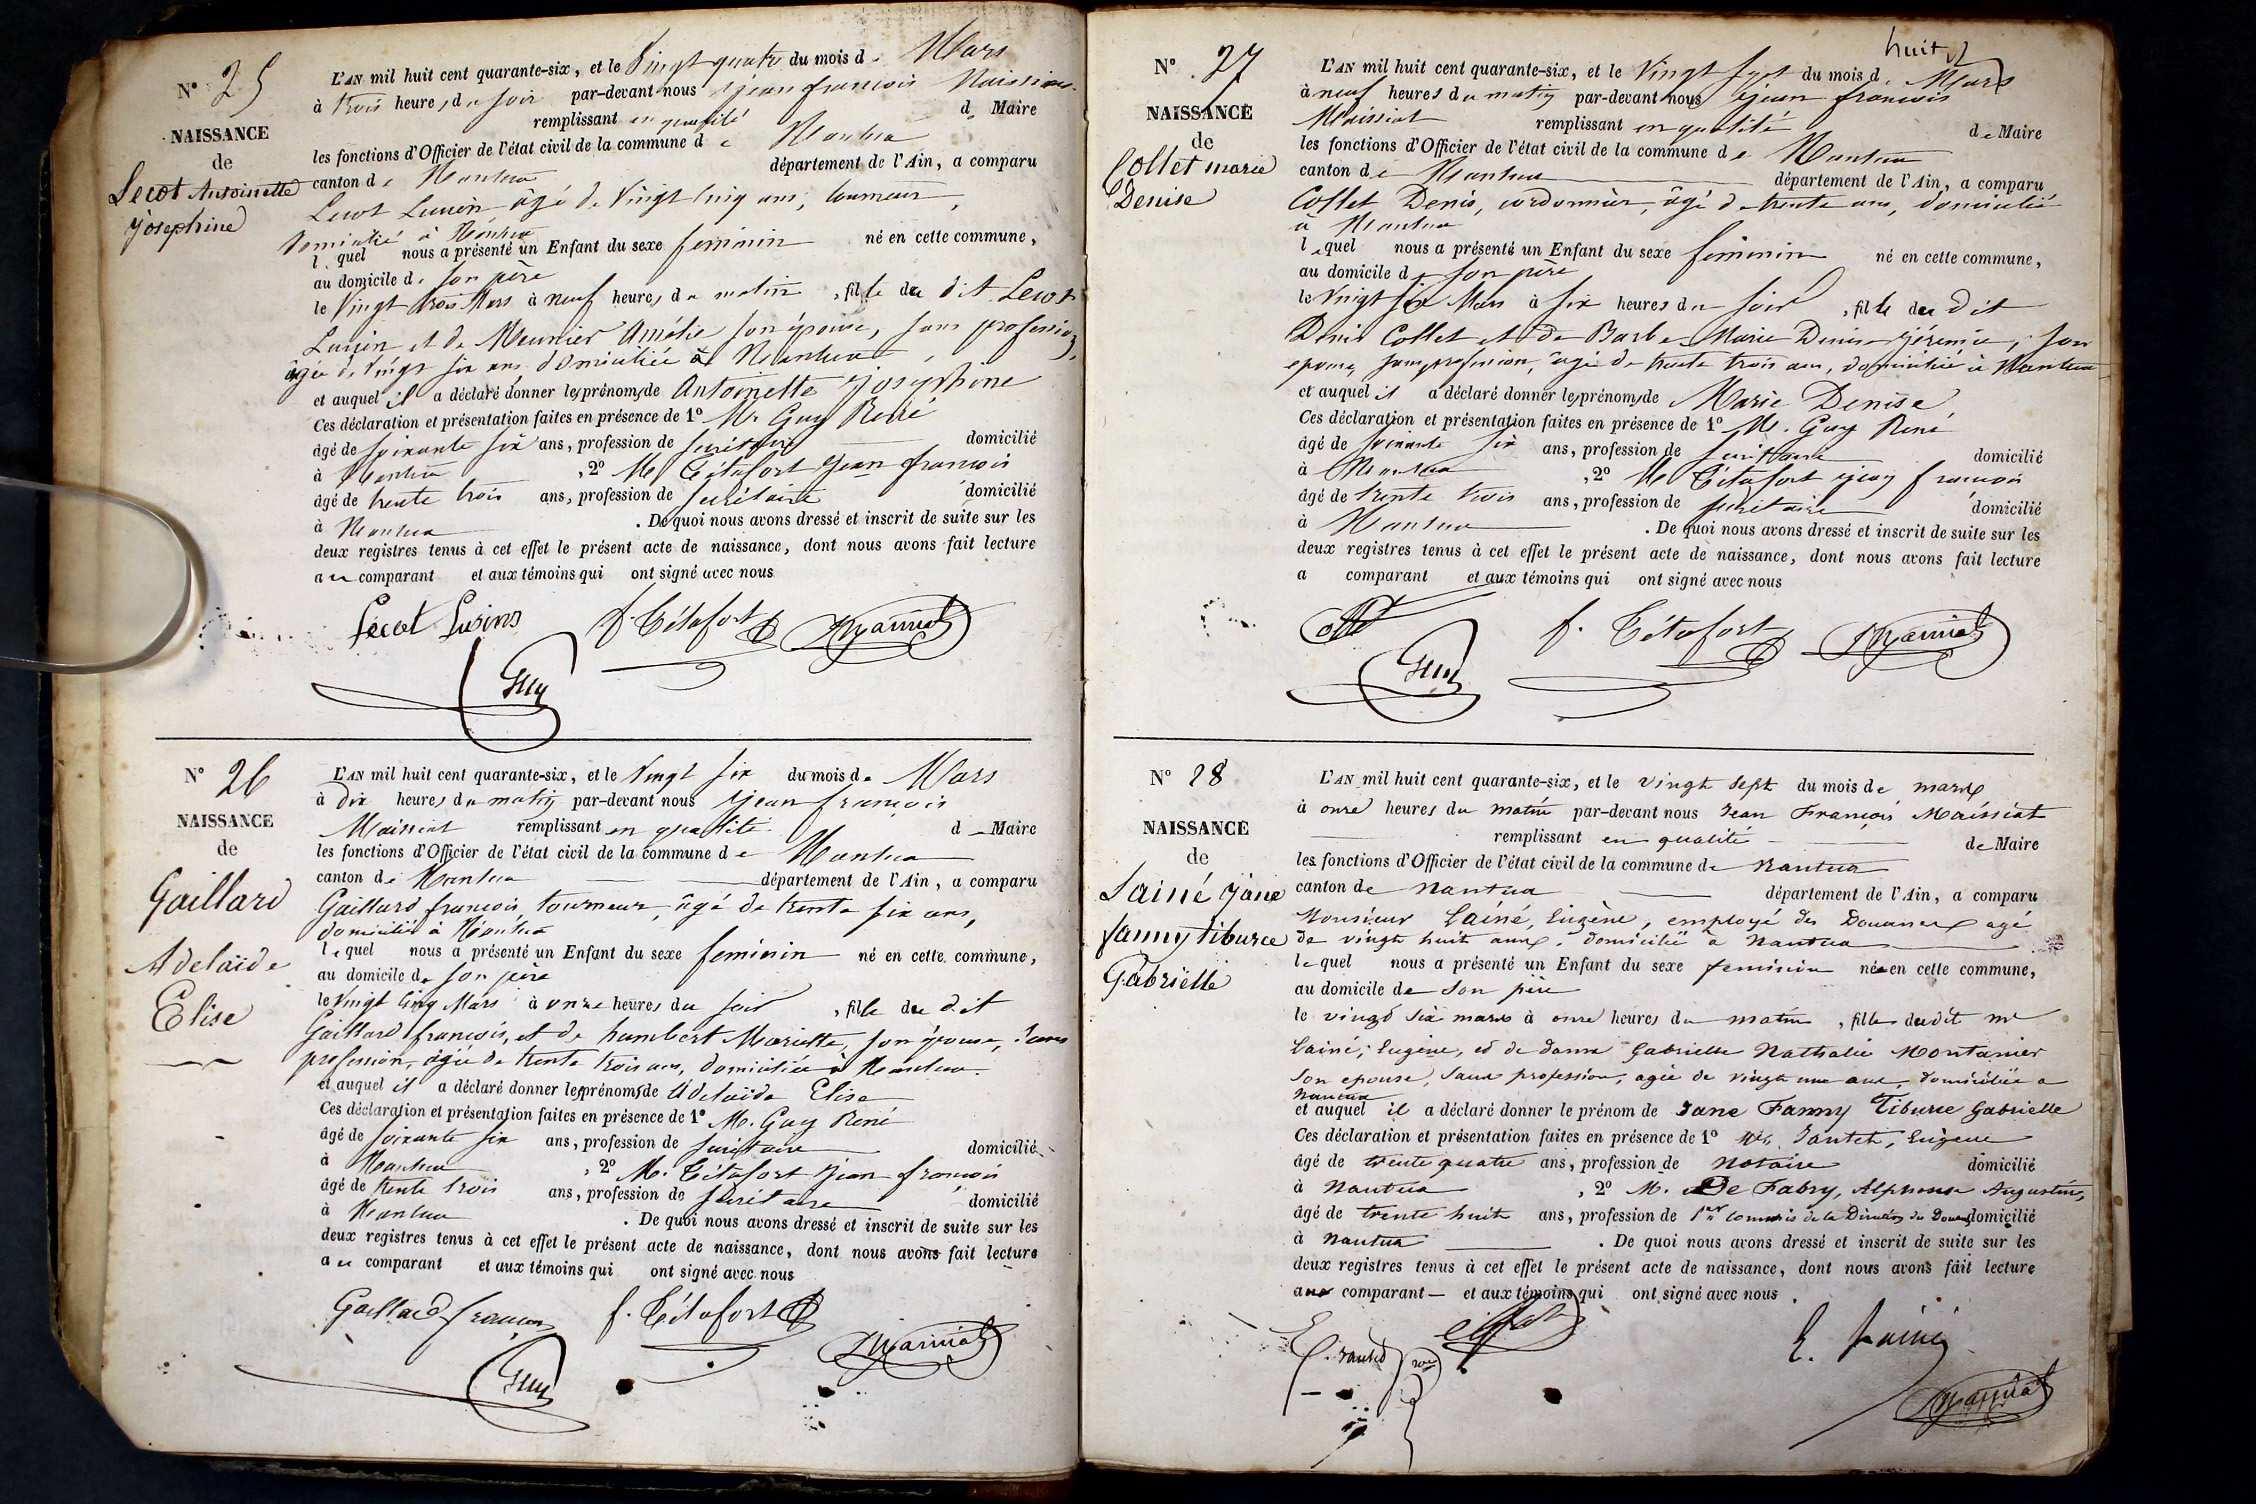 N° 25
NAISSANCE
de
Lecot Antoinette
joséphine
L'AN mil huit cent quarante-six, et le Vingt quatre du mois de Mars
à trois heures du soir par-devant nous jean françois Maissiat
remplissant en qualité de Maire
les fonctions d'Officier de l'état civil de la commune de Nantua
canton de Nantua département de l'Ain, a comparu
Lecot Lucien âgé de Vingt cinq ans, tourneur,
domicilié à Nantua
lequel nous a présenté un Enfant du sexe feminin né en cette commune,
au domicile de son père
le Vingt trois Mars à neuf heures du matin, fille du dit Lecot
Lucien et de Meunier Amélie son épouse, sans profession,
âgée de Vingt six ans domiciliée à Nantua,
et auquel il a déclaré donner les prénoms de Antoinette joséphine
Ces déclaration et présentation faites en présence de 1° Mr Guy René
âgé de soixante six ans, profession de secrétaire domicilié
à Nantua, 2° M. Tétafort jean françois
âgé de trente trois ans, profession de secrétaire domicilié
à Nantua. De quoi nous avons dressé et inscrit de suite sur les
deux registres tenus à cet effet le présent acte de naissance, dont nous avons fait lecture
au comparant et aux témoins qui ont signé avec nous
Lecot f. Tétafort Maissiat
Guy
N° 26
NAISSANCE
de
Gaillard
Adelaïde
Elise
L'AN mil huit cent quarante-six, et le Vingt six du mois de Mars
à dix heures du matin par-devant nous jean françois
Maissiat remplissant en qualité de Maire
les fonctions d'Officier de l'état civil de la commune de Nantua
canton de Nantua département de l'Ain, a comparu
Gaillard françois, tourneur, âgé de trente six ans,
domicilié à Nantua
lequel nous a présenté un Enfant du sexe feminin né en cette commune,
au domicile de son père
le Vingt cinq Mars à onze heures du soir, fille du dit
Gaillard françois, et de humbert Mariette, son épouse, sans
profession, âgée de trente trois ans, domiciliée à Nantua.
et auquel il a déclaré donner les prénoms de Adelaïde Elise
Ces déclaration et présentation faites en présence de 1° M. Guy René
âgé de soixante six ans, profession de secrétaire domicilié
à Nantua, 2° M. Tétafort jean françois
âgé de trente trois ans, profession de secrétaire domicilié
à Nantua. De quoi nous avons dressé et inscrit de suite sur les
deux registres tenus à cet effet le présent acte de naissance, dont nous avons fait lecture
au comparant et aux témoins qui ont signé avec nous
Gaillard françois f. Tétafort Maissiat
Guy
huit
N° 27
NAISSANCE
de
Collet marie
Denise
L'AN mil huit cent quarante-six, et le Vingt sept du mois de Mars
à neuf heures du matin par-devant nous jean françois
Maissiat remplissant en qualité de Maire
les fonctions d'Officier de l'état civil de la commune de Nantua
canton de Nantua département de l'Ain, a comparu
Collet Denis, cordonnier, âgé de trente ans, domicilié
à Nantua
lequel nous a présenté un Enfant du sexe feminin né en cette commune,
au domicile de son père
le Vingt six Mars à six heures du soir, fille du dit
Denis Collet et de Barbe Marie Denise jérémie, son
epouse, sans profession, âgé de trente trois ans, domiciliée à Nantua
et auquel il a déclaré donner les prénoms de Marie Denise,
Ces déclaration et présentation faites en présence de 1° M. Guy René
âgé de soixante six ans, profession de secrétaire domicilié
à Nantua, 2° M. Tétafort jean françois
âgé de trente trois ans, profession de secrétaire domicilié
à Nantua. De quoi nous avons dressé et inscrit de suite sur les
deux registres tenus à cet effet le présent acte de naissance, dont nous avons fait lecture
a comparant et aux témoins qui ont signé avec nous
f. Tétafort Maissiat
Guy
N° 28
NAISSANCE
de
Lainé jane
fanny tiburce
Gabrielle
L'AN mil huit cent quarante-six, et le vingt sept du mois de mars
à onze heures du matin par-devant nous Jean François Maissiat
remplissant en qualité de Maire
les fonctions d'Officier de l'état civil de la commune de Nantua
canton de Nantua département de l'Ain, a comparu
Monsieur Lainé, Eugène, employé des Douanes agé
de vingt huit ans, domicilié à Nantua
lequel nous a présenté un Enfant du sexe feminin née en cette commune,
au domicile de son père
le vingt six mars à onze heures du matin, fille dudit mr
Lainé, Eugène, et de dame Gabrielle Nathalie Montanier
son epouse, sans profession, agée de vingt un ans, domiciliée a
Nantua
et auquel il a déclaré donner le prénom de Jane Fanny Tiburce Gabrielle
Ces déclaration et présentation faites en présence de 1° Mr Jantet, Eugène
âgé de trente quatre ans, profession de Notaire domicilié
à Nantua, 2° M. De Fabry, Alphonse Augustin,
âgé de trente huit ans, profession de 1er commis de la Direction des Douanes domicilié
à Nantua. De quoi nous avons dressé et inscrit de suite sur les
deux registres tenus à cet effet le présent acte de naissance, dont nous avons fait lecture
aux comparant et aux témoins qui ont signé avec nous.
E. Jantet
E. Lainé
Maissiat